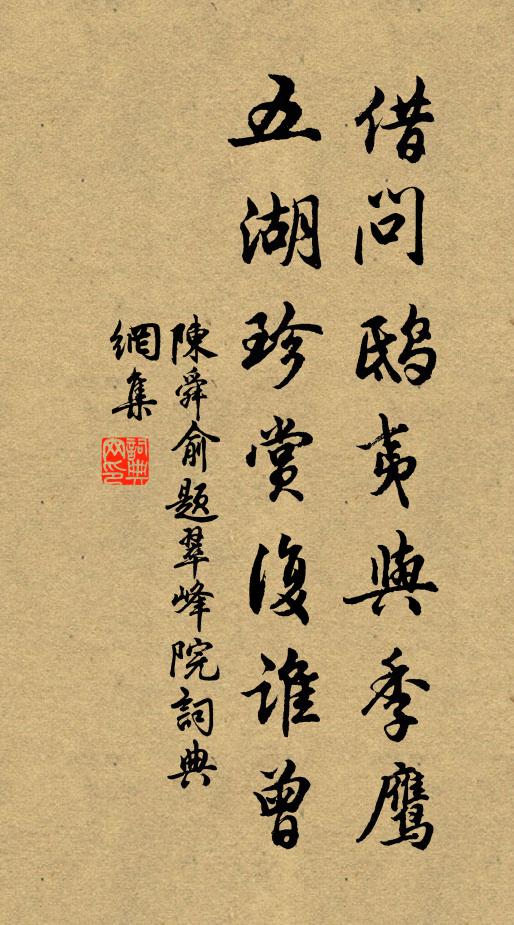 借問鴟夷與季鷹
五湖珍賞復誰曾
陳舜俞題翠峰院詞典
網集
詞典
网印